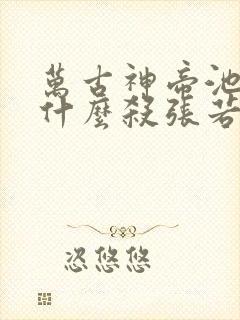 萬古神帝池
什麼殺張若
恣悠悠